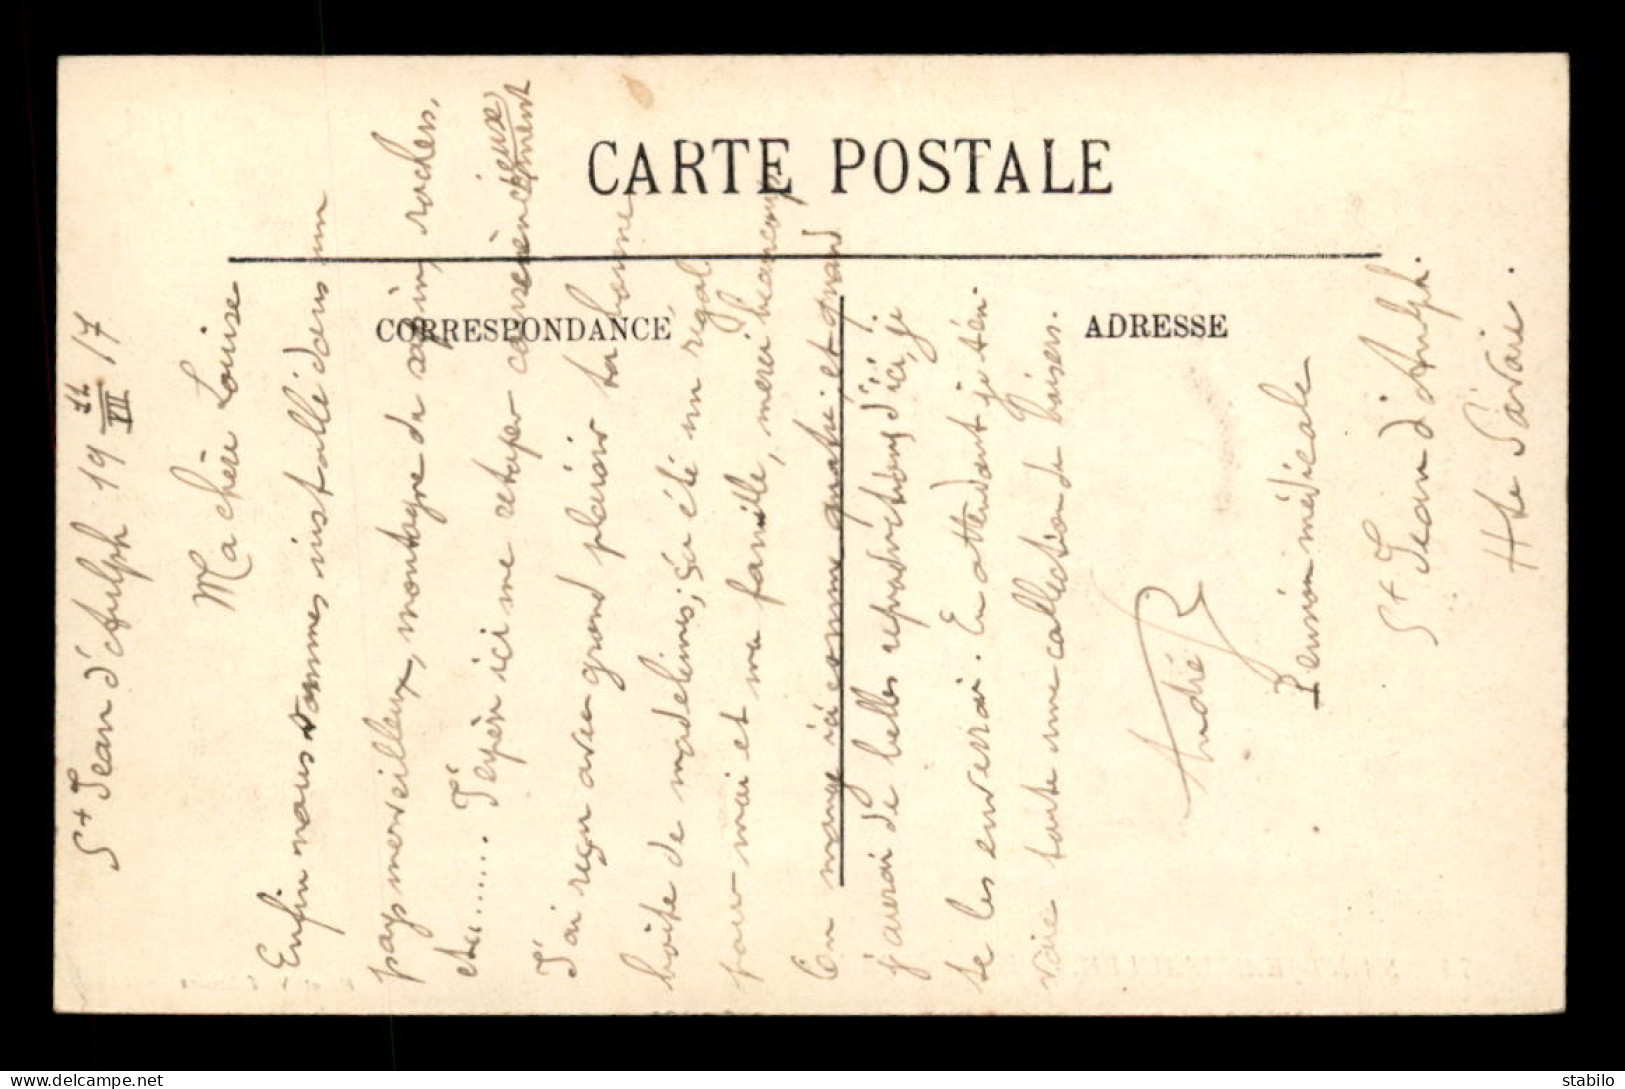 CARTE POSTALE
CORRESPONDANCE
ADRESSE
St Jean d'Aulph 19 11/VII 17
Ma chère Louise
Enfin nous sommes installé dans un
pays merveilleux, montagne du sapin, rochers,
etc....... J'espèr ici me retaper consciencieusement
J'ai reçu avec grand plaisir ta bonne
boite de madeleines; ça été un régal
pour moi et ma famille, merci beaucoup
On mange ici comme quatre et quand
j'aurai de belles reproductions d'ici, je
te les enverrai. En attendant je t'en-
voie toute une collection de baisers.
André
Pension médicale
St Jean d'Aulph.
Hte Savoie.
stabilo